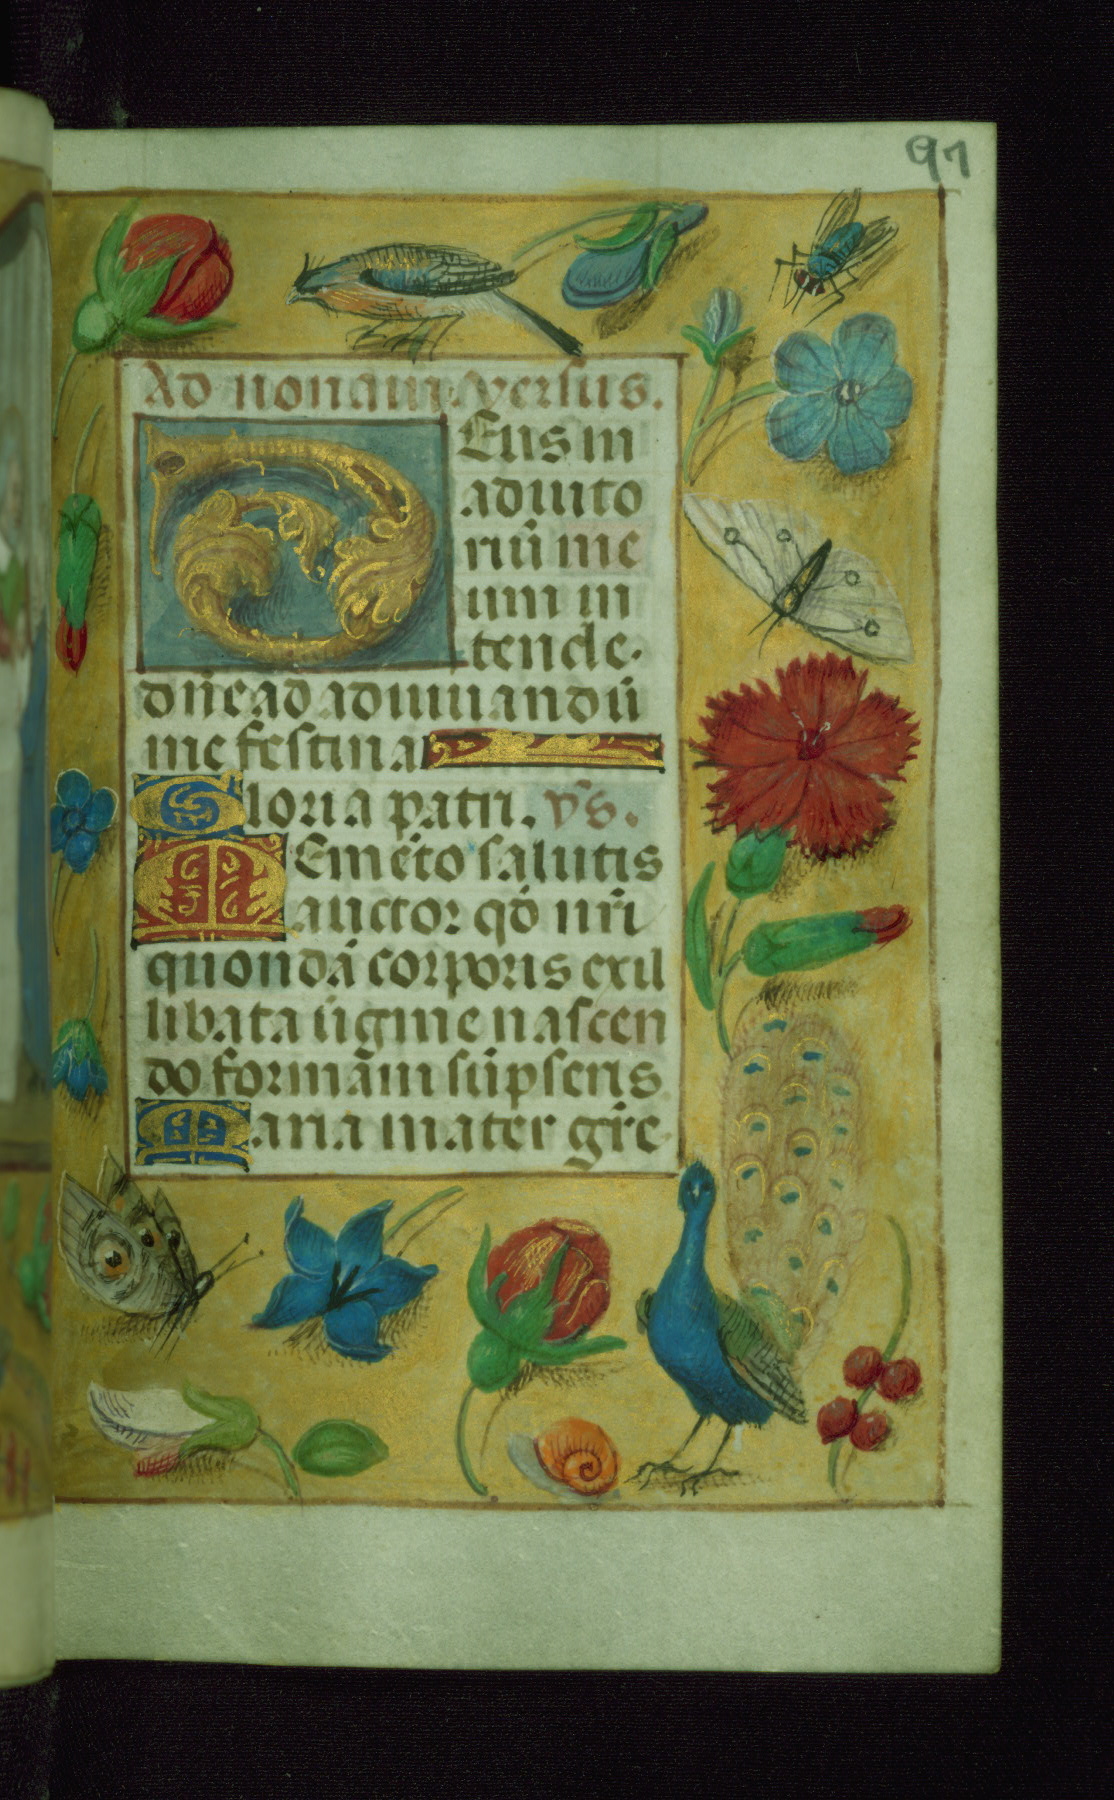 97
Ad nonam. versus.
Deus in
adiuto
riū me
um in
tende.
dn̄e ad adiuuandū
me festina
Gloria patri. v̄s.
Memēto salutis
auctor qd̄ nr̄i
quondā corporis exil
libata ūgine nascen
do formām sūpseris
Maria mater gr̄e